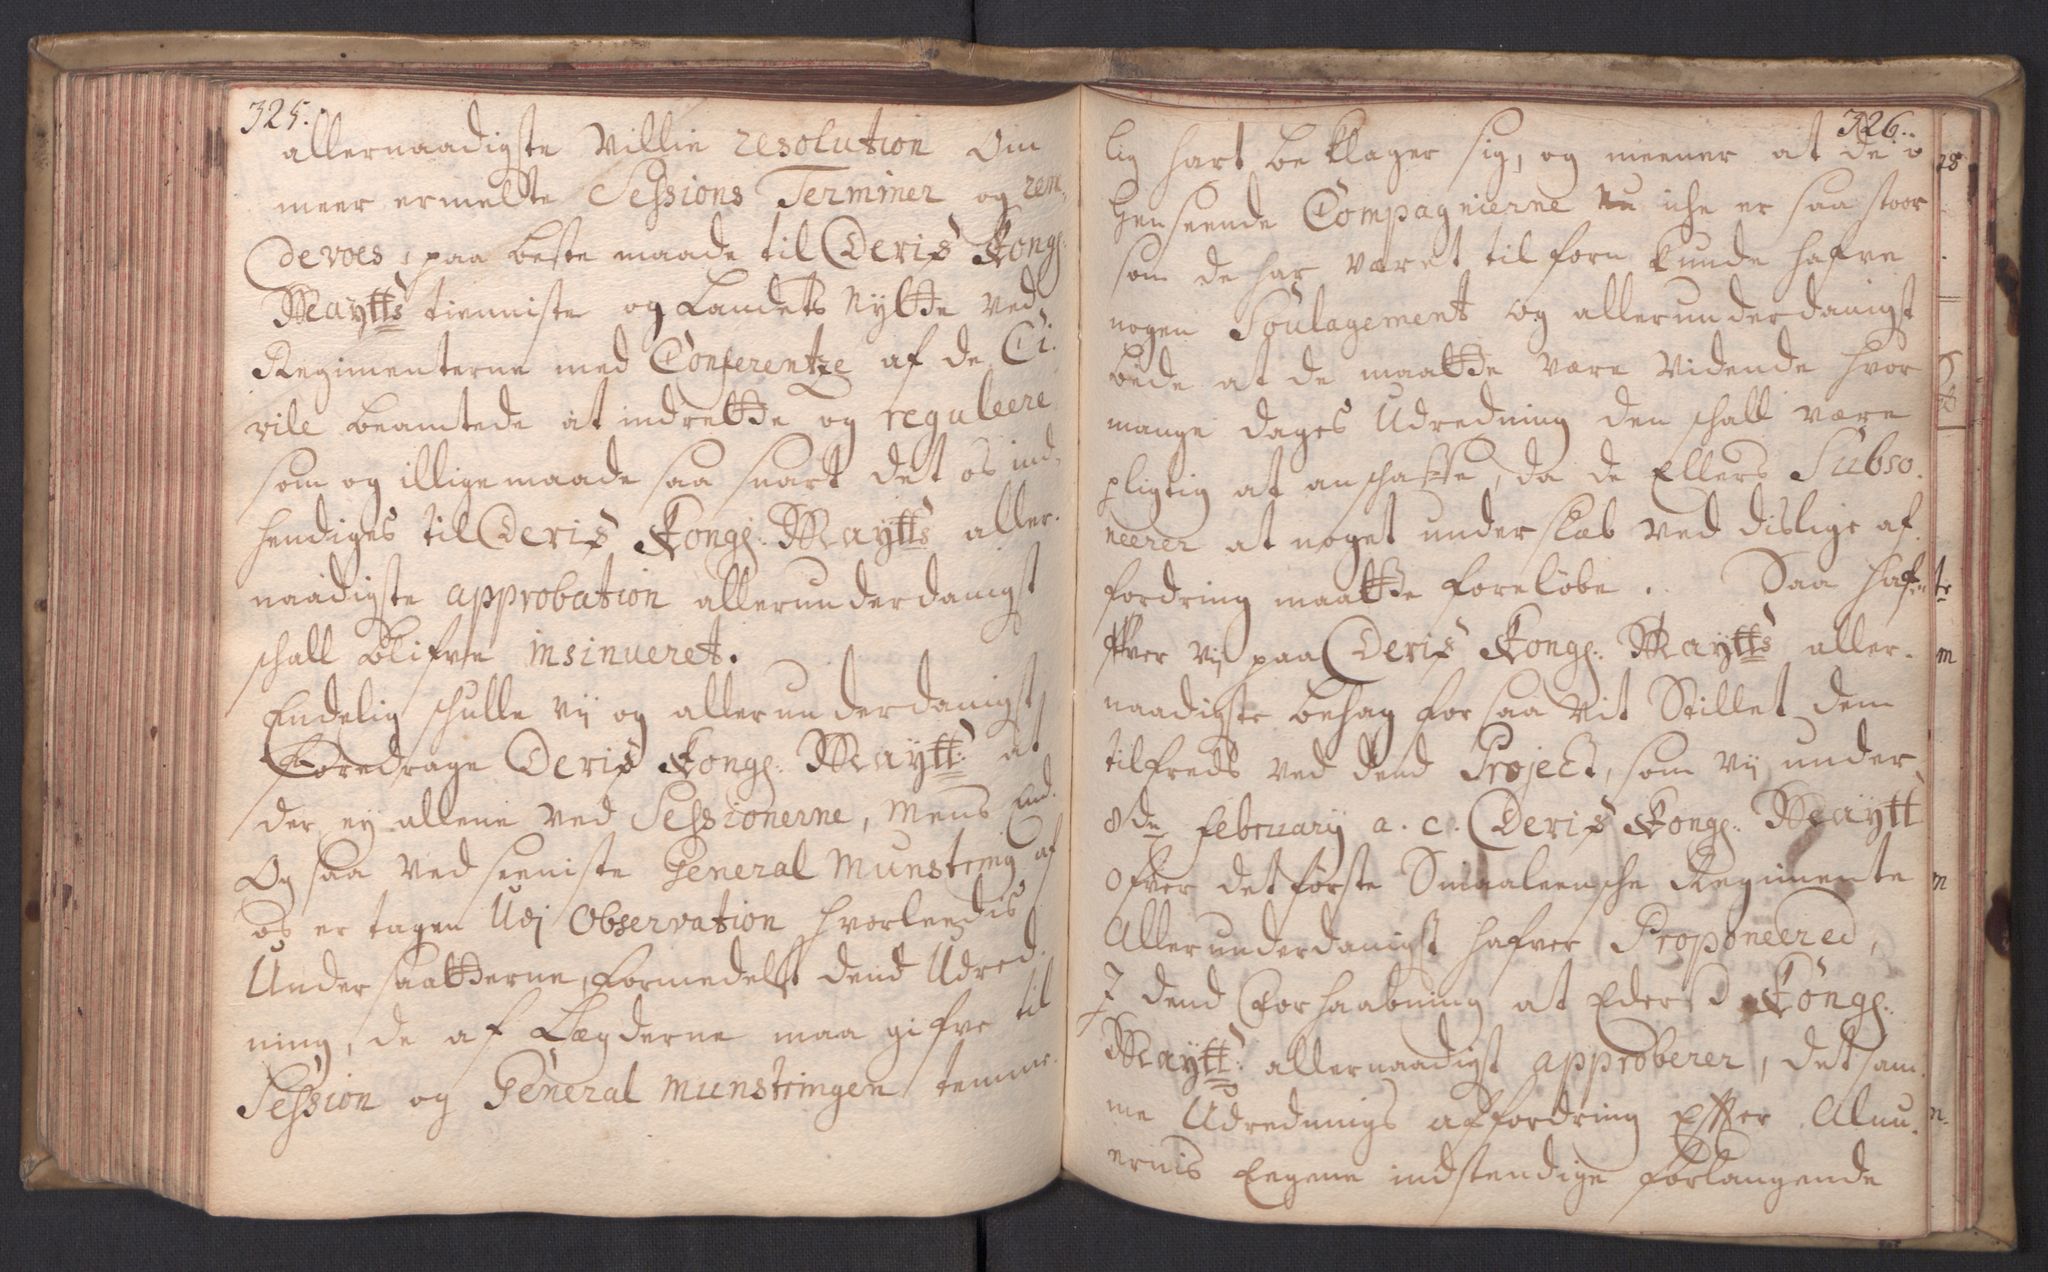 325.
allernaadigste Villie resolution Om
meer ermelte Sessions Terminer og ren-
devoes, paa beste maade til Deris Kong:
Maytts tienniste og Landets Nytte ved
Regimenterne med Conferentze af de Ci-
vile beamtede at indrette og reguleere
som og illigemaade saa snart det os ind-
hendiges til Deris Kong: Maytts aller-
naadigste approbation allerunderdanigst
schall blifve insinueret.
Endelig schulle vij og allerunderdanigst
Foredrage Deris Kong: Maytt: at
der ey allene ved Sessionerne, mens End-
Og saa ved seeniste General Munstring af
os er tagen Udj Observation hvorleedis
Undersaatterne, formedelst dend Udred-
ning, de af Lægderne maa gifve til
Session og General munstringen temme-
326.
lig hart beklager sig, og meener at de i
henseende Compagnierne nu iche er saa stoor
som de har været tilforn kunde hafve
nogen Soulagement og allerunderdanigst
bede at de maatte være Vidende hvor
mange dages Udredning den schall være
pligtig at anschaffe, da de Ellers Subso-
neerer at noget underslæb ved dislige af-
fordring maatte foreløbe. Saa haf-
fver vij paa Deris Kong: Maytts aller-
naadigste behag for saa vit Stillet dem
tilfreds ved dend Project, som vij under
8de February a. c. Deris Kong: Maytt
Ofver det første Smaaleensche Regimente
Allerunderdanigst hafver Proponeered,
J dend Forhaabning at Eders Kong:
Maytt: allernaadigst approberer, det sam-
me Udrednings affordring Effter Almu-
ernis Eegene indstendige forlangende